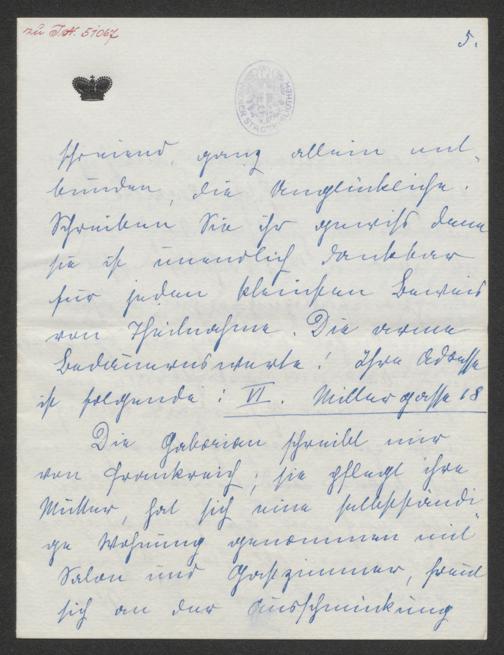 zu I.N. 51067
5.
WIENER STADTBIBLIOTHEK
schreiend, ganz allein ent-
bunden, die Unglückliche.
Schreiben Sie ihr gewiss denn
sie ist unendlich dankbar
für jeden kleinsten Beweis
von Theilnahme. Die arme
Bedauernswerte! Ihre Adresse
ist folgende: VI. Millergasse 18
Die Gaborian schreibt mir
von Frankreich; sie pflegt ihre
Mutter, hat sich eine selbständi-
ge Wohnung genommen mit
Salon und Gastzimmer, freut
sich an der Ausschmückung